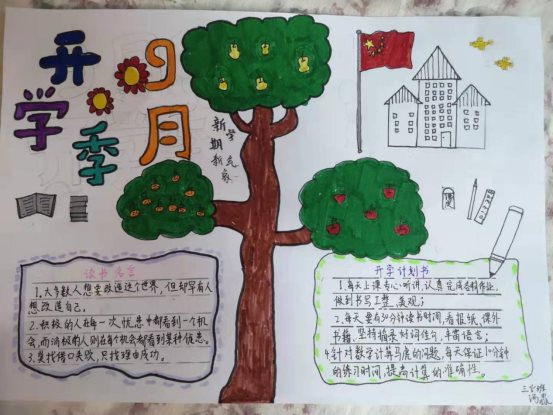 9月
开学季
新学期新气象
读书名言
1.大多数人想要改造这个世界,但却罕有人
想改造自己。
2.积极的人在每一次忧患中都看到一个机
会,而消极的人则在每个机会都看到某种忧患。
3.莫找借口失败,只找理由成功。
开学计划书
1.每天上课专心听讲,认真完成各科作业,
做到书写工整、美观;
2.每天要有30分钟读书时间,看报纸、课外
书籍,坚持摘录好词佳句,丰富语言;
4.针对数学计算马虎的问题,每天保证10分钟
的练习时间,提高计算的准确性。